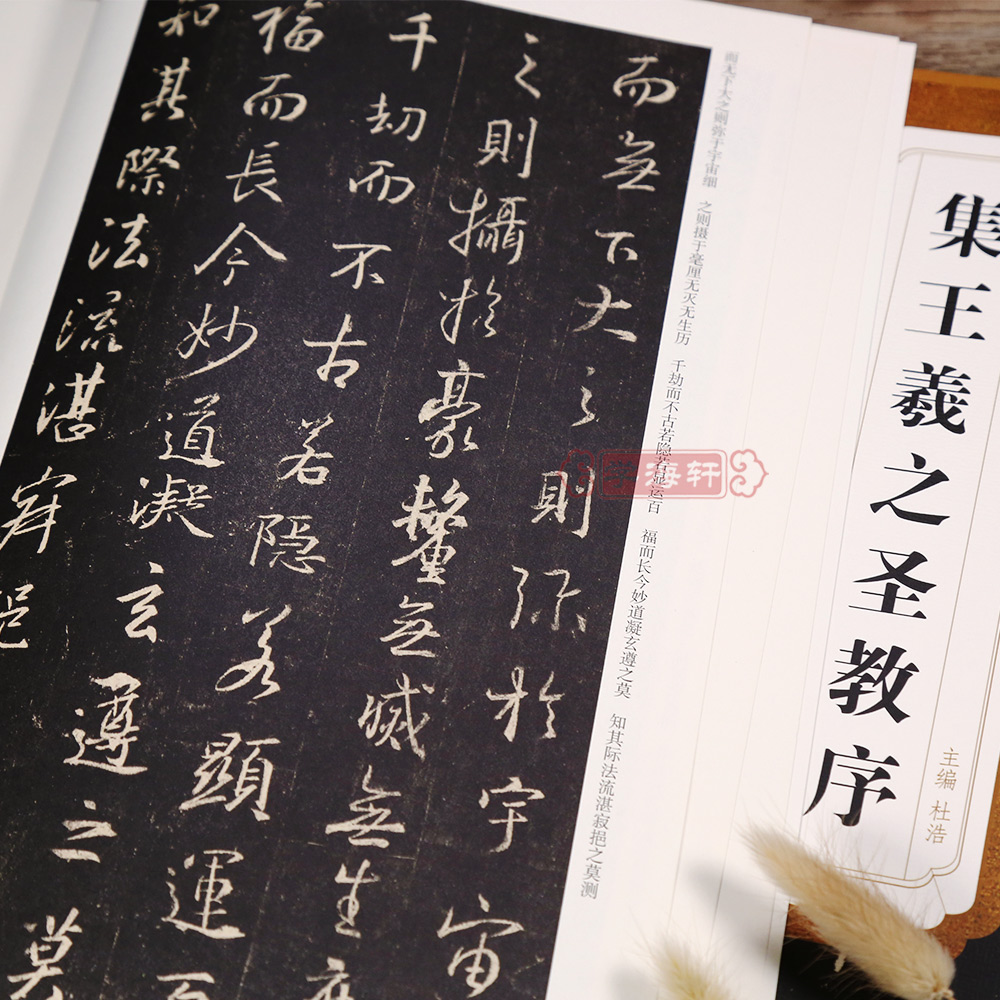 而無下大之則弥於宇宙
之則攝於豪釐無滅無生
千劫而不古若隱若顯運百
福而長今妙道凝玄遵之莫
知其際法流湛寂挹
而无下大之则弥于宇宙细
之则摄于毫厘无灭无生历
千劫而不古若隐若显运百
福而长今妙道凝玄遵之莫
知其际法流湛寂挹之莫测
海轩
集王羲之圣教序
主编 杜浩